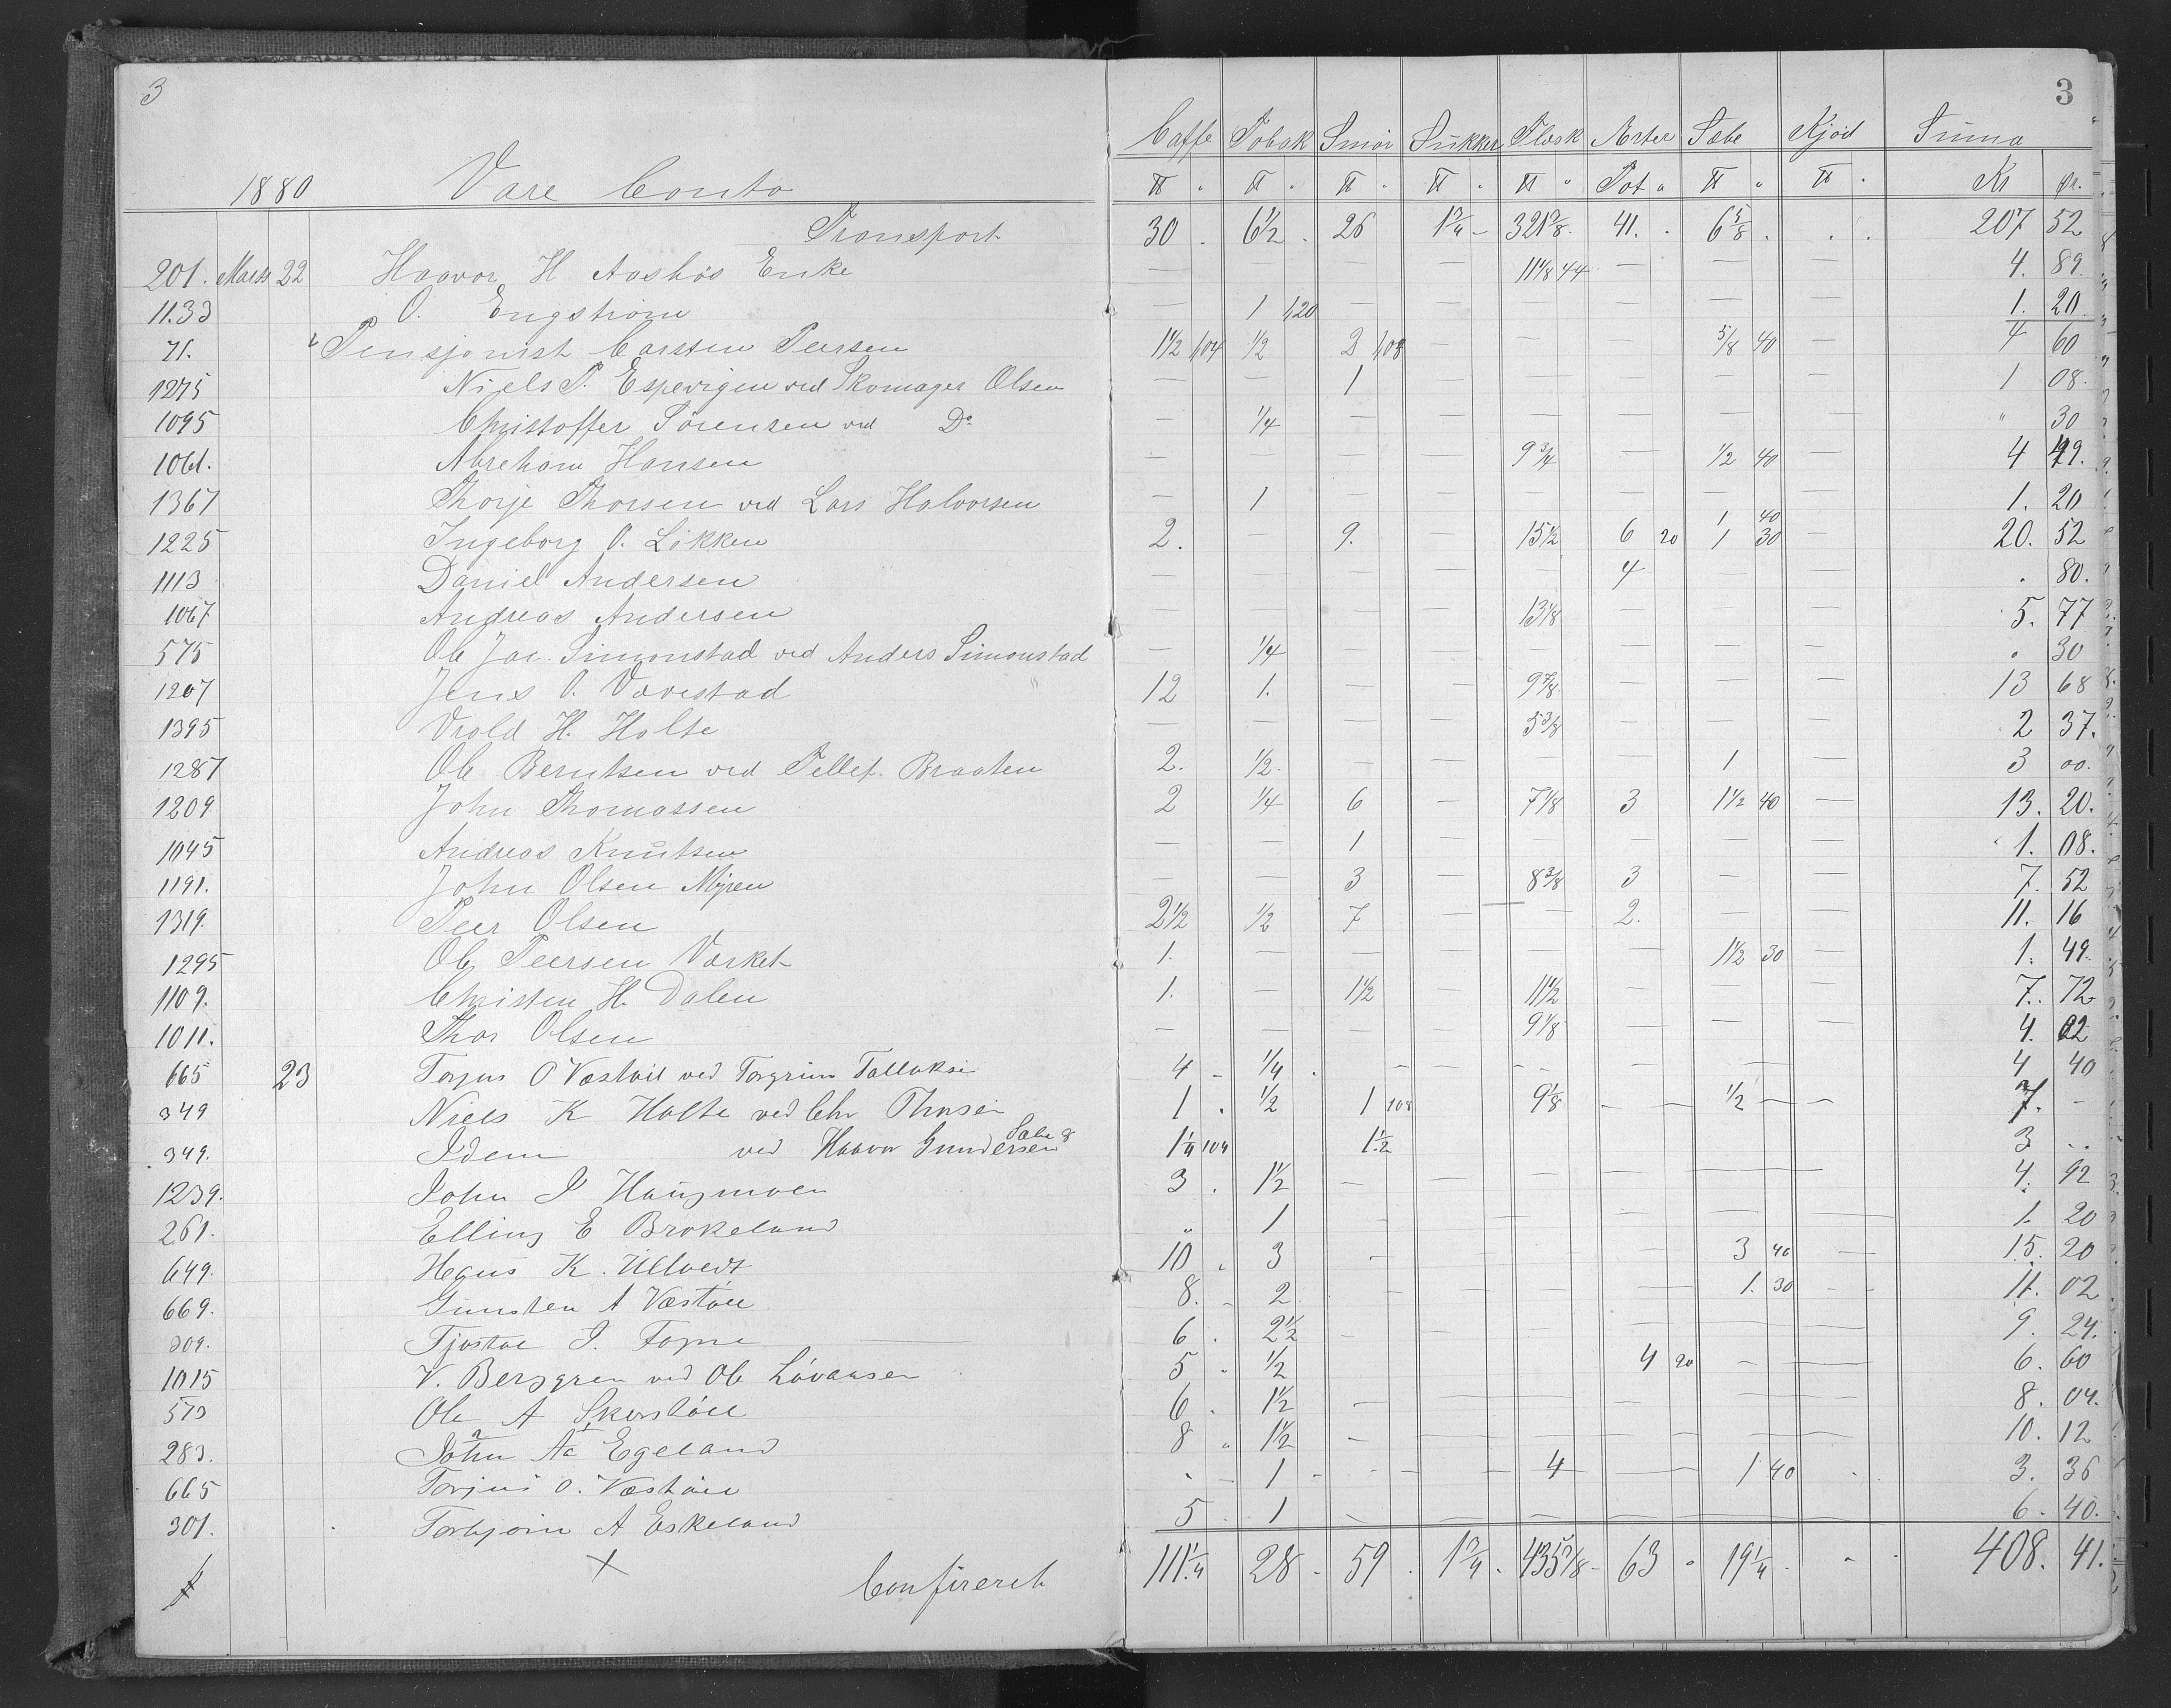 3 3
Caffe Tobak Smör Sukker Flæsk Arter Sæbe Kjöd Suma
1880 Vare Conto ℔ " ℔ " ℔ " ℔ " ℔ " Pot " ℔ " ℔ " Kr ør.
Transport 30 . 6½ . 26 1¾ - 321⅜ . 41. . 6⅝ . . . 207 52
201. Marts 22 Haavor H Aashös Enke — — — — 11⅛ 44 — — — 4. 89
1133 O. Engström — 1 120 — — — — — — 1. 20
71. Pensjonist Carsten Peersen 1½ 104 ½ 2 108 — — — ⅝ 40 — 4 60
1275 Niels P. Espevigen ved Skomager Olsen — — 1 — — — — — 1 08.
1095 Christoffer Sörensen ved Do — ¼ — — — — — — " 30
1061. Abreham Hansen — — — — 9¾ — ½ 40 — 4 49.
1367 Thorje Thorsen ved Lars Halvorsen — 1 — — — — — — 1. 20
1225 Ingeborg O. Lökken 2. — 9. — 15½ 6 20 1 40 1 30 — 20. 52
1113 Daniel Andersen — — — — — 4 — — . 80.
1067 Andreas Andersen — — — — 13⅛ — — — 5. 77
575 Ole Jac. Simonstad ved Anders Simonstad — ¼ — — — — — — . 30
1207 Jens O. Vævestad 12 1. — — 9⅞ — — — 13 68
1395 Vrold H. Holte — — — — 5⅜ — — — 2 37.
1287 Ole Berntsen ved Tellef. Braaten 2. ½ — — — — 1 — 3 00.
1209 John Thomassen 2 ¼ 6 — 7⅛ 3 1½ 40 — 13. 20.
1045 Andreas Knutsen — — 1 — — — — — 1. 08.
1191. John Olsen Myren — — 3 — 8⅜ 3 — — 7. 52
1319. Peer Olsen 2½ ½ 7 — — 2. — — 11. 16
1295 Ole Peersen Værket 1. — — — — — 1½ 30 — 1. 49.
1109. Christen H. Dalen 1. — 1½ — 11½ — — — 7. 72
1011. Thor Olsen — — — — 9⅛ — — — 4. 02
665 23 Torjus O Væstöil ved Torgrim Talluksen 4 - ¼ . — — — — — — 4 40
349 Niels K Holte ved Chr Thorsen 1 . ½ 1 108 9⅛ — — ½ — — 7. -
349. Idem ved Haavor Gundersen Sæbe 8 1¼ 104 1½ 3 ..
1239. John J Haugmoen 3 . 1½ — — — — — — 4. 92
261. Elling E Brokeland " 1 — — — — — — 1. 20
649. Hegus K. Ulltveit 10 . 3 — — 3 40 — 15. 20
669. Gunsten A Væstöil 8. - 2 — — 1. 30 - - 11. 02
309. Tjöstov J. Fogne 6 . 2½ — — — — — 9. 24.
1015 V. Berggren ved Ole Lövaasen 5 . ½ 4 20 — — 6. 60
573 Ole A Skerstöil 6 . 1½ — — — — — 8. 04.
283. John Aa Egeland 8 " 1½ — — — — — 10. 12
665 Torjus O. Væstöil . - 1 - - — — 4 — 1 40 . 3. 36
301. Torbjörn A Eskeland 5 . 1 — — — — — — 6. 40.
Confereret 111¼ 28 - 59 . 1¾ . 435⅞ - 63 " 19¼ . - . 408. 41.